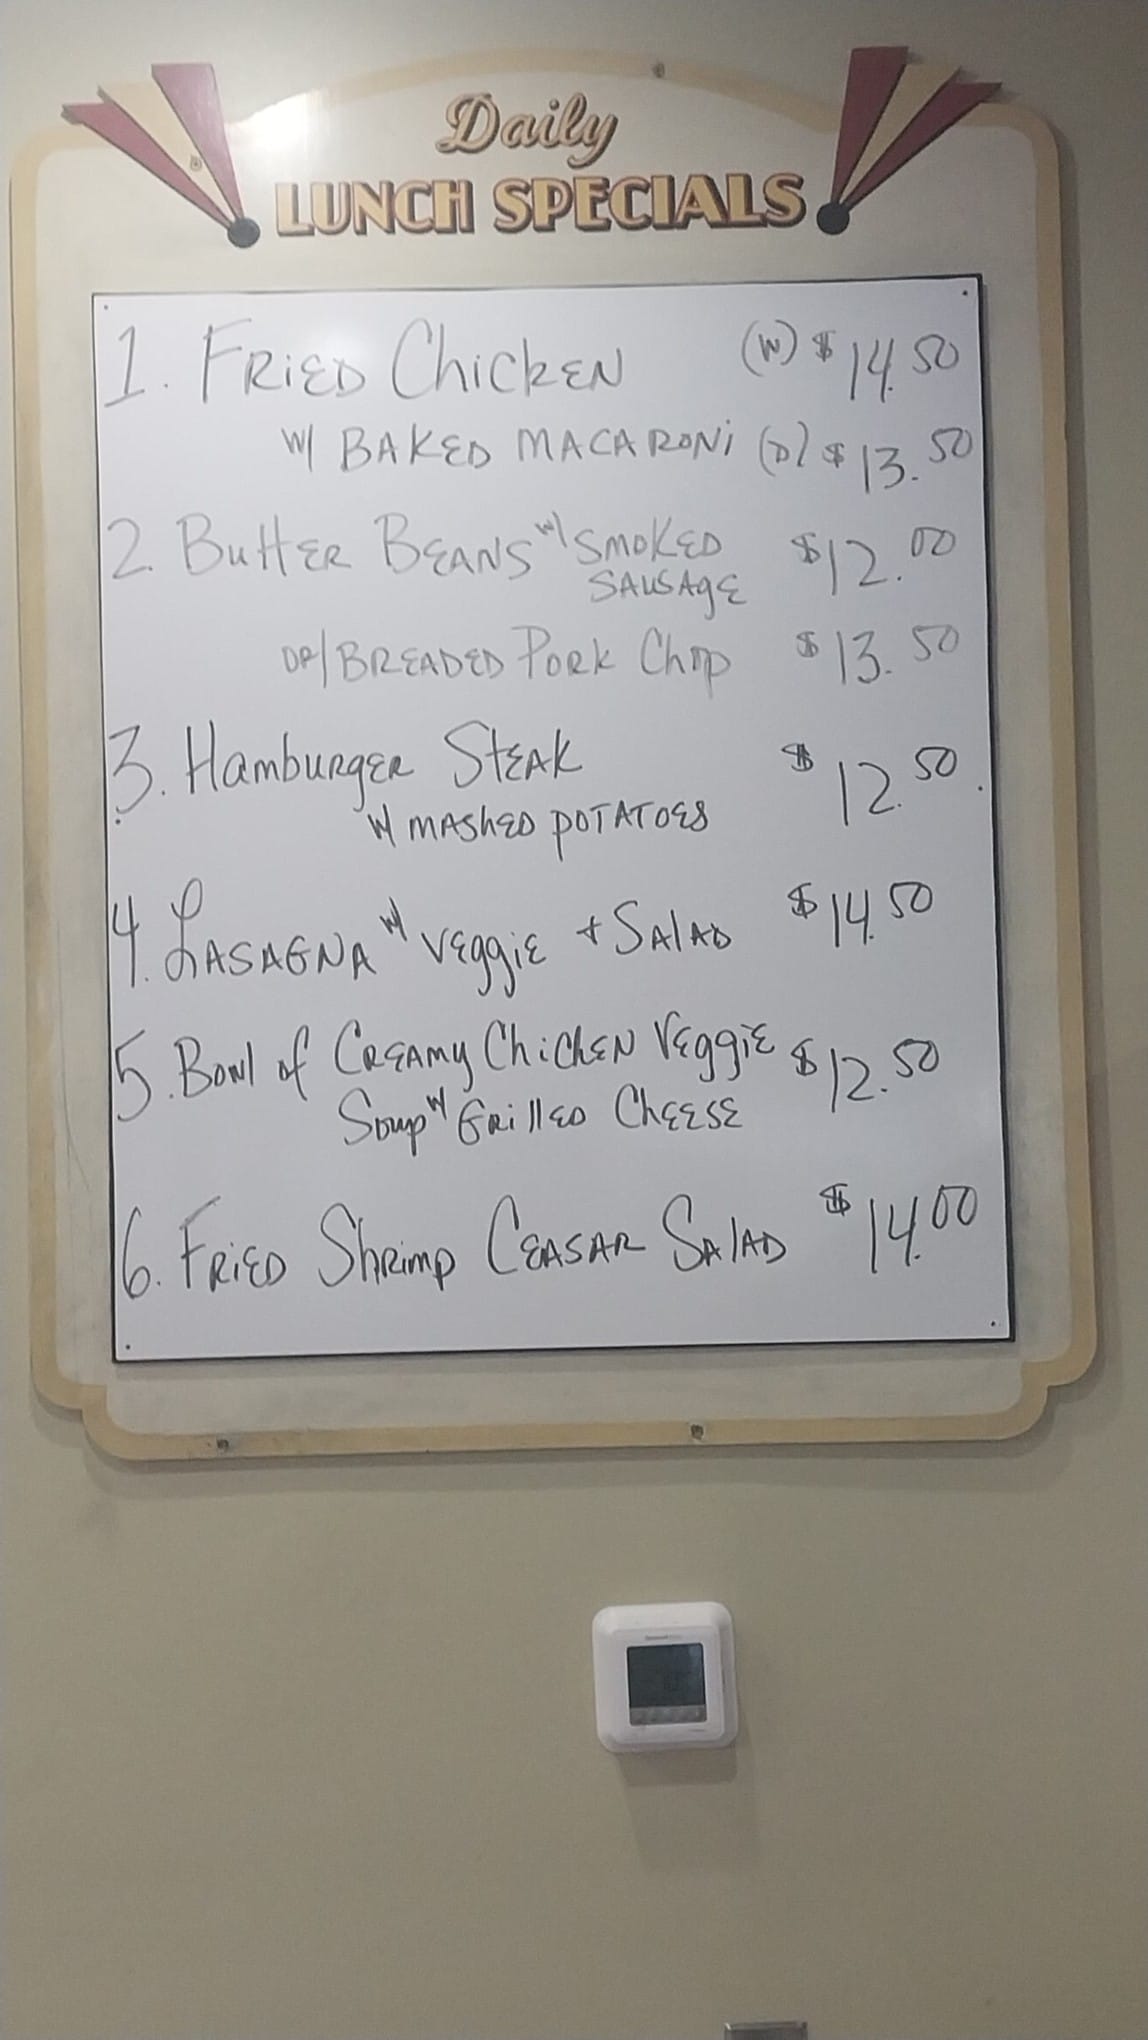 Daily
LUNCH SPECIALS
1. FRIED ChicKEN (W) $14.50
W/ BAKED MACARONi (D) $13.50
2. ButtER BEANS W/ SMOKED $12.00
SAUSAgE
OR/ BREADED PORK Chop $13.50
3. HamburgER STEAK $12.50
W/ MAShED POTATOES
4. LASAGNA W/ VEggiE + SAlAD $14.50
5. Bowl of CREAMy ChicKEN VEggiE $12.50
Soup W/ GRillED ChEESE
6. FRiED ShRimp CEASAR SAlAD $14.00